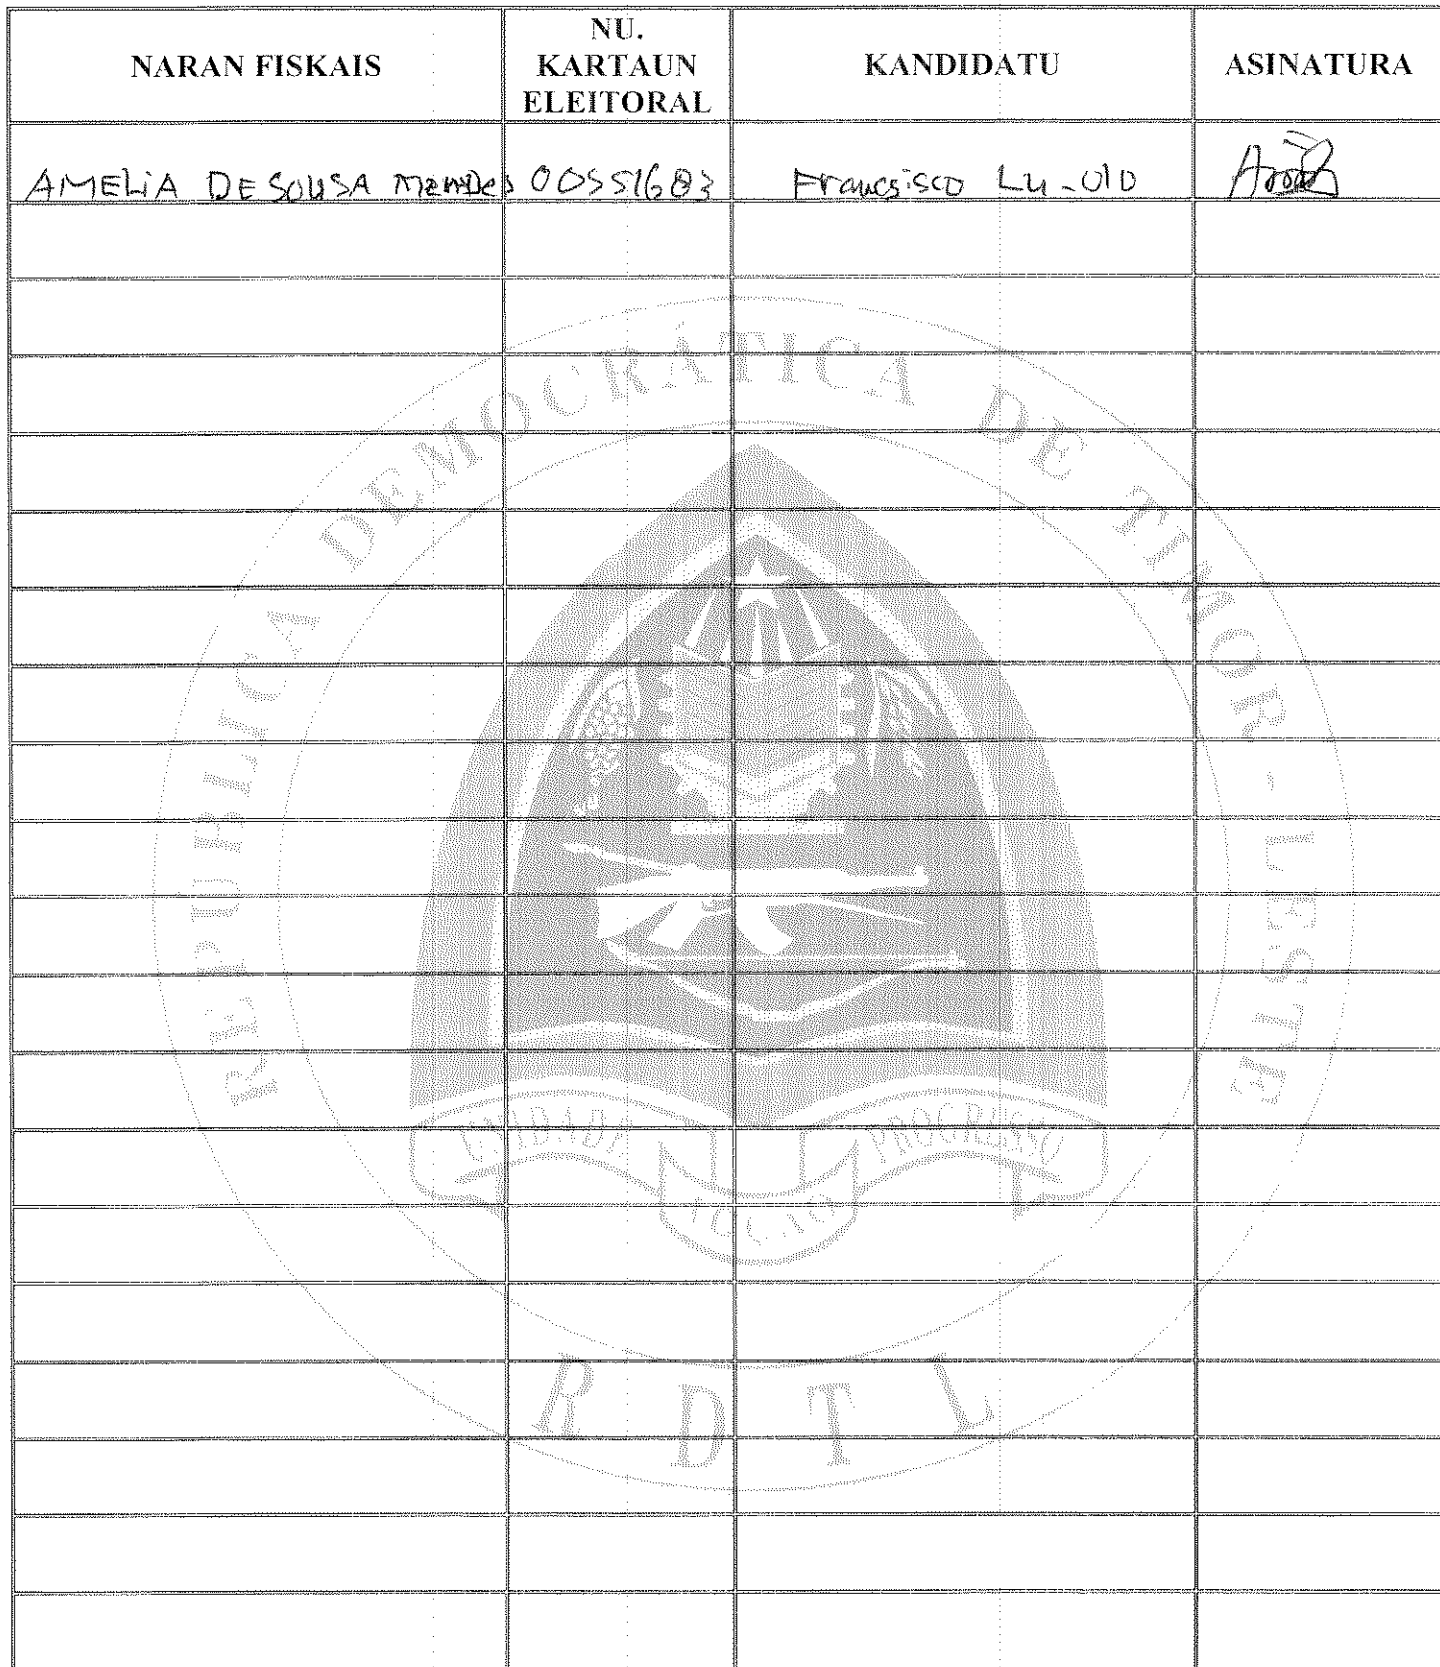 NARAN FISKAIS
NU.
KARTAUN
ELEITORAL
KANDIDATU
ASINATURA
AMELiA DE SOUSA Mendes 00551683 Francsisco Lu-Olo
REPUBLICA DEMOCRÁTICA DE TIMOR - LESTE
UNIDADE ACÇAO PROGRESSO
R D T L